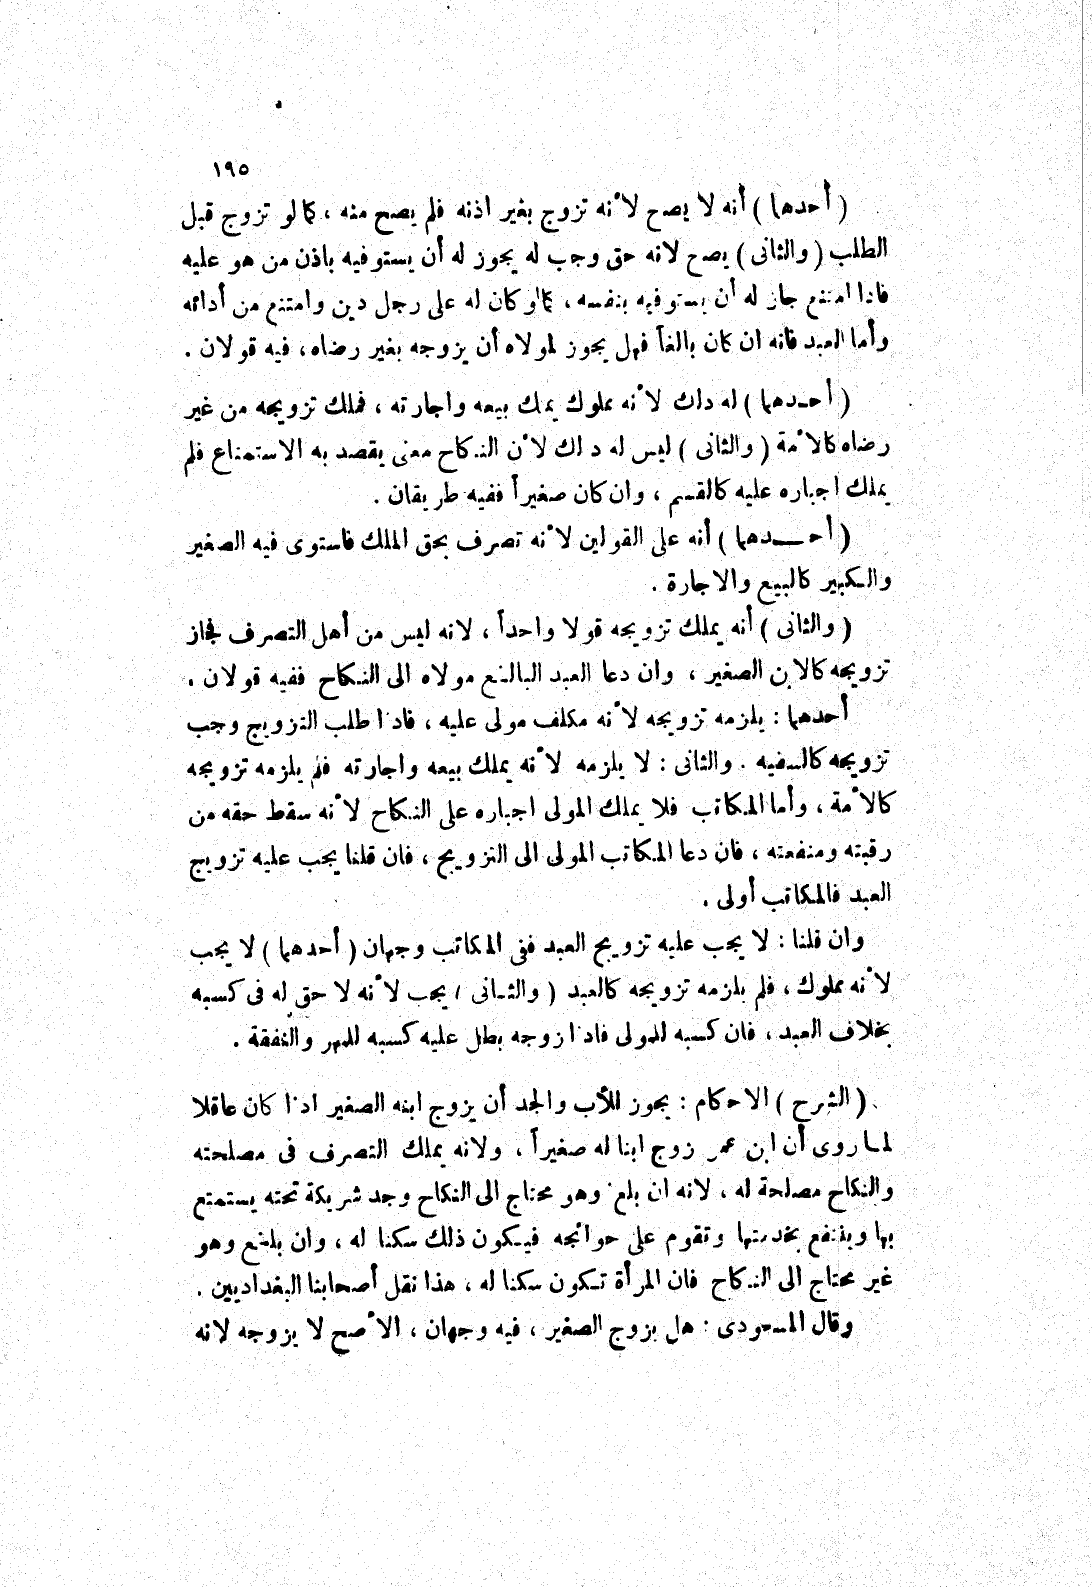 ١٩٥
( أحدهما ) أنه لا يصح لأنه تزوج بغير اذنه فلم يصح منه ، كما لو تزوج قبل
الطلب ( والثانى ) يصح لانه حق وجب له يجوز له أن يستوفيه باذن من هو عليه
فاذا امتنع جاز له أن يستوفيه بنفسه ، كما لو كان له على رجل دين وامتنع من أدائه
وأما العبد فانه ان كان بالغاً فهل يجوز لمولاه أن يزوجه بغير رضاه ، فيه قولان .
( أحدهما ) له ذلك لأنه مملوك يملك بيعه واجارته ، فملك تزويجه من غير
رضاه كالأمة ( والثانى ) ليس له ذلك لأن النكاح معنى يقصد به الاستمتاع فلم
يملك اجباره عليه كالقسم ، وان كان صغيراً ففيه طريقان .
( أحدهما ) أنه على القولين لأنه تصرف بحق الملك فاستوى فيه الصغير
والكبير كالبيع والاجارة .
( والثانى ) أنه يملك تزويجه قولا واحداً ، لانه ليس من أهل التصرف فجاز
تزويجه كالابن الصغير ، وان دعا العبد البالغ مولاه الى النكاح ففيه قولان .
أحدهما : يلزمه تزويجه لأنه مكلف مولى عليه ، فاذا طلب التزويج وجب
تزويجه كالسفيه . والثانى : لا يلزمه لأنه يملك بيعه واجارته فلم يلزمه تزويجه
كالأمة ، وأما المكاتب فلا يملك المولى اجباره على النكاح لأنه سقط حقه من
رقبته ومنفعته ، فان دعا المكاتب المولى الى التزويج ، فان قلنا يجب عليه تزويج
العبد فالمكاتب أولى .
وان قلنا : لا يجب عليه تزويج العبد ففى المكاتب وجهان ( أحدهما ) لا يجب
لأنه مملوك ، فلم يلزمه تزويجه كالعبد ( والثانى ) يجب لأنه لا حق له فى كسبه
بخلاف العبد ، فان كسبه للمولى فاذا زوجه بطل عليه كسبه للمهر والنفقة .
( الشرح ) الاحكام : يجوز للأب والجد أن يزوج ابنه الصغير اذا كان عاقلا
لما روى أن ابن عمر زوج ابنا له صغيراً ، ولانه يملك التصرف فى مصلحته
والنكاح مصلحة له ، لانه ان بلغ وهو محتاج الى النكاح وجد شريكة تحته يستمتع
بها وينتفع بخدمتها وتقوم على حوائجه فيكون ذلك سكنا له ، وان بلغ وهو
غير محتاج الى النكاح فان المرأة تكون سكنا له ، هذا نقل أصحابنا البغداديين .
وقال المسعودى : هل يزوج الصغير ، فيه وجهان ، الأصح لا يزوجه لانه